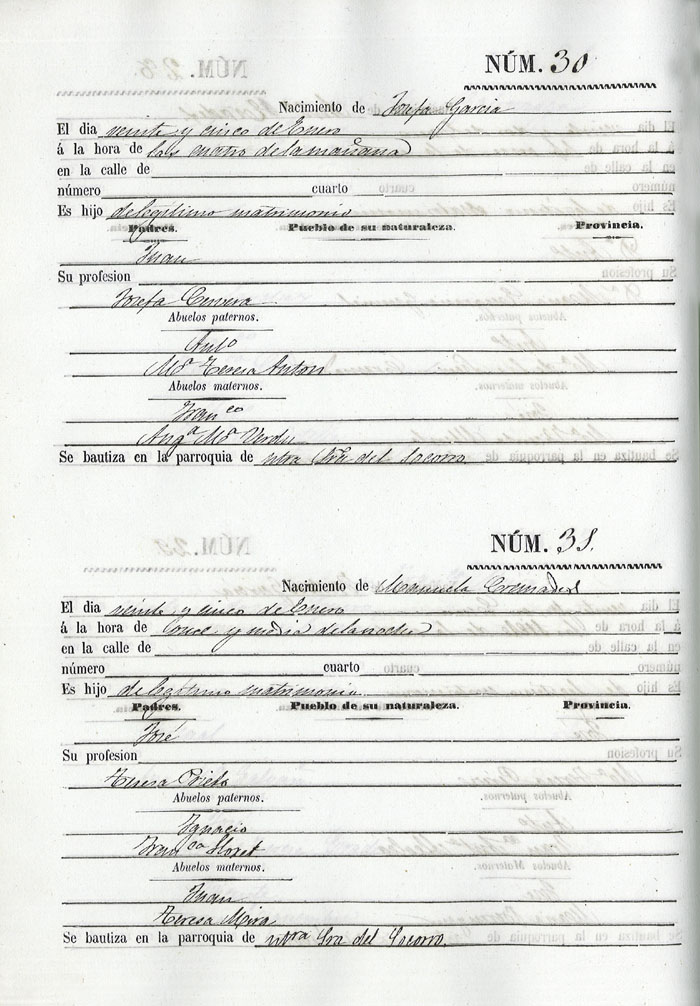 NÚM. 30
Nacimiento de Josefa Garcia
El dia veinte y cinco de Enero
á la hora de las cuatro de la mañana
en la calle de
número cuarto
Es hijo de legitimo matrimonio
Padres. Pueblo de su naturaleza. Provincia.
Juan
Su profesion
Josefa Cervera
Abuelos paternos.
Antº
Mª Teresa Anton
Abuelos maternos.
Franco
Angª Mª Verdu
Se bautiza en la parroquia de ntra Sra del Socorro
NÚM. 31.
Nacimiento de Manuela Cremades
El dia veinte y cinco de Enero
á la hora de once y media de la noche
en la calle de
número cuarto
Es hijo de legitimo matrimonio
Padres. Pueblo de su naturaleza. Provincia.
José
Su profesion
Teresa Prieto
Abuelos paternos.
Ignacio
Franca Lloret
Abuelos maternos.
Juan
Teresa Mira
Se bautiza en la parroquia de ntra Sra del Socorro